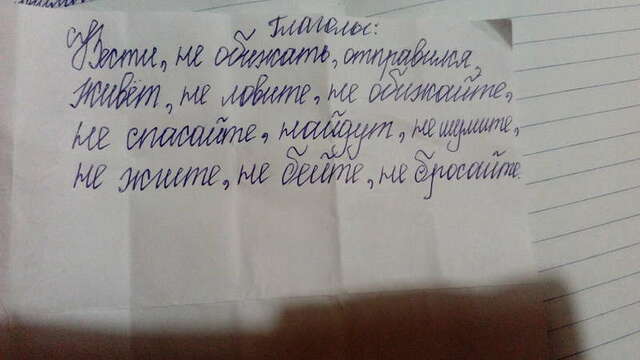 Глаголы:
Вести, не обижать, отправился,
живёт, не ловите, не обижайте,
не спасайте, найдут, не шумите,
не жгите, не бейте, не бросайте.